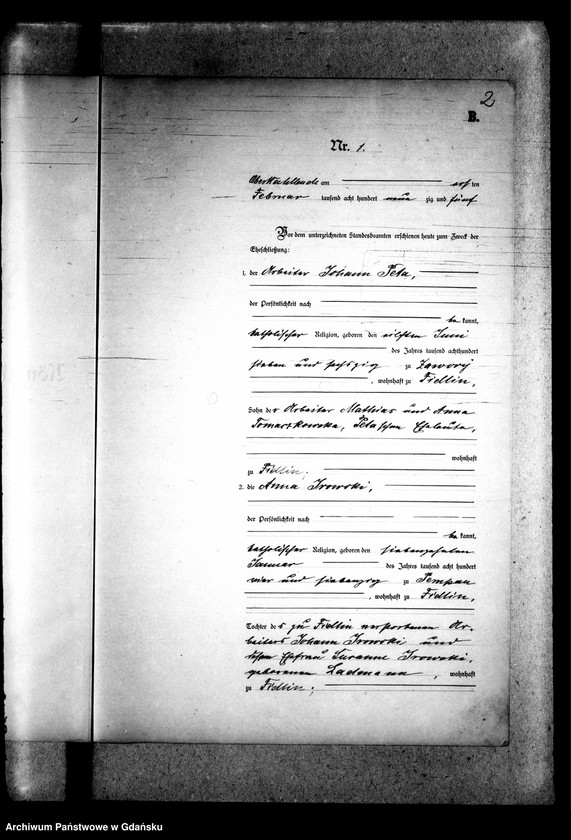 2
B.
Nr. 1.
am ersten
Februar tausend acht hundert neun zig und fünf
Vor dem unterzeichneten Standesbeamten erschienen heute zum Zweck der
Eheschließung:
1. der Arbeiter Johann Peta,
der Persönlichkeit nach
be kannt,
katholischer Religion, geboren den eilften Juni
des Jahres tausend achthundert
sieben und sechszig zu Zawory
, wohnhaft zu Fidlin,
Sohn des Arbeiter Mathias und Anna
Tomaszkowska, Peta'schen Eheleute,
wohnhaft
zu Fidlin;
2. die Anna Irowski,
der Persönlichkeit nach
be kannt,
katholischer Religion, geboren den siebenzehnten
Januar des Jahres tausend acht hundert
vier und siebenzig zu Pempau
, wohnhaft zu Fidlin,
Tochter des zu Fidlin verstorbenen Ar-
beiters Johann Irowski und
dessen Ehefrau Susanne Irowski,
geborenen Ladmann, wohnhaft
zu Fidlin;
Archiwum Państwowe w Gdańsku